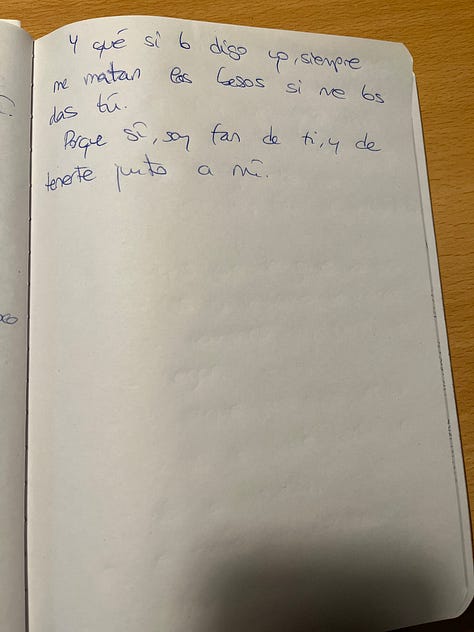 Y qué si lo digo yo, siempre
me matan los besos si me los
das tú.
Porque sí, soy fan de ti, y de
tenerte junto a mí.